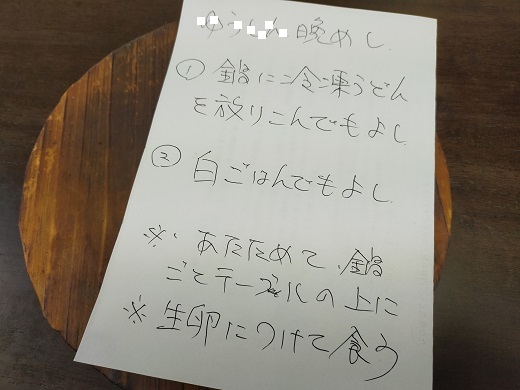 晩めし
① 鍋に冷凍うどん
を放りこんでもよし
② 白ごはんでもよし
※、あたためて、鍋
ごとテーブルの上に
※ 生卵につけて食う